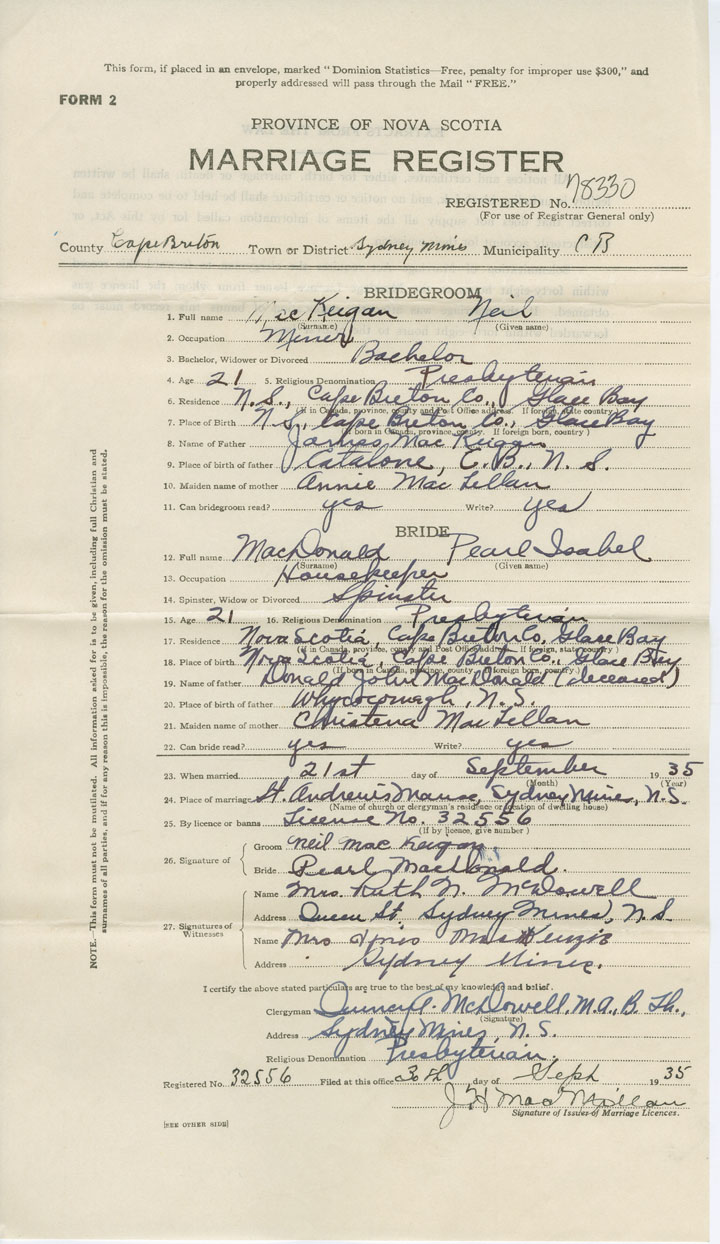 This form, if placed in an envelope, marked "Dominion Statistics—Free, penalty for improper use $300," and
properly addressed will pass through the Mail "FREE."
FORM 2
PROVINCE OF NOVA SCOTIA
MARRIAGE REGISTER
REGISTERED No. 78330
(For use of Registrar General only)
County Cape Breton Town or District Sydney Mines Municipality C B
BRIDEGROOM
1. Full name MacKeigan Neil
(Surname) (Given name)
2. Occupation Miner
3. Bachelor, Widower or Divorced Bachelor
4. Age 21 5. Religious Denomination Presbyterian
6. Residence N.S., Cape Breton Co., Glace Bay
(If in Canada, province, county and Post Office address. If foreign, state country)
7. Place of Birth N.S., Cape Breton Co., Glace Bay
(If born in Canada, province, county. If foreign born, country)
8. Name of Father James MacKeigan
9. Place of birth of father Catalone, C.B., N.S.
10. Maiden name of mother Annie MacLellan
11. Can bridegroom read? yes Write? yes
BRIDE
12. Full name MacDonald Pearl Isabel
(Surname) (Given name)
13. Occupation Housekeeper
14. Spinster, Widow or Divorced Spinster
15. Age 21 16. Religious Denomination Presbyterian
17. Residence Nova Scotia, Cape Breton Co., Glace Bay
(If in Canada, province, county and Post Office address, If foreign, state country)
18. Place of birth Nova Scotia, Cape Breton Co., Glace Bay
(If born in Canada, province, county. If foreign born, country)
19. Name of father Donald John MacDonald (deceased)
20. Place of birth of father Whycocomagh, N.S.
21. Maiden name of mother Christena MacLellan
22. Can bride read? yes Write? yes
23. When married 21st day of September 1935
(Month) (Year)
24. Place of marriage St. Andrew's Manse, Sydney Mines, N.S.
(Name of church or clergyman's residence or location of dwelling house)
25. By licence or banns License No. 32556
(If by licence, give number)
26. Signature of
Groom Neil MacKeigan
Bride Pearl MacDonald.
27. Signatures of Witnesses
Name Mrs. Ruth N. McDowell
Address Queen St. Sydney Mines, N.S.
Name Mrs MacKenzie
Address Sydney Mines.
I certify the above stated particulars are true to the best of my knowledge and belief.
Clergyman A. McDowell, M.A., B.Th.,
(Signature)
Address Sydney Mines, N.S.
Religious Denomination Presbyterian.
Registered No. 32556 Filed at this office 30th day of Sept 1935
J H MacMillan
Signature of Issuer of Marriage Licences.
[SEE OTHER SIDE]
NOTE.—This form must not be mutilated. All information asked for is to be given, including full Christian and
surnames of all parties, and if for any reason this is impossible, the reason for the omission must be stated.